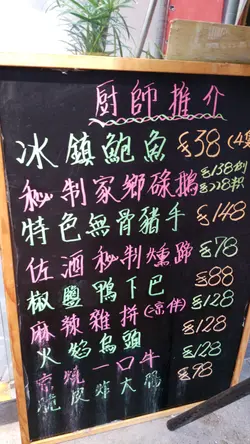 廚師推介
冰鎮鮑魚 $38 (4隻
秘制家鄉碌鵝 $138例
$228半
特色無骨豬手 $148
佐酒秘制燻蹄 $78
椒鹽鴨下巴 $88
麻辣雜拼(涼伴) $128
火焰烏頭 $128
燒一口牛 $128
脆皮炸大腸 $98